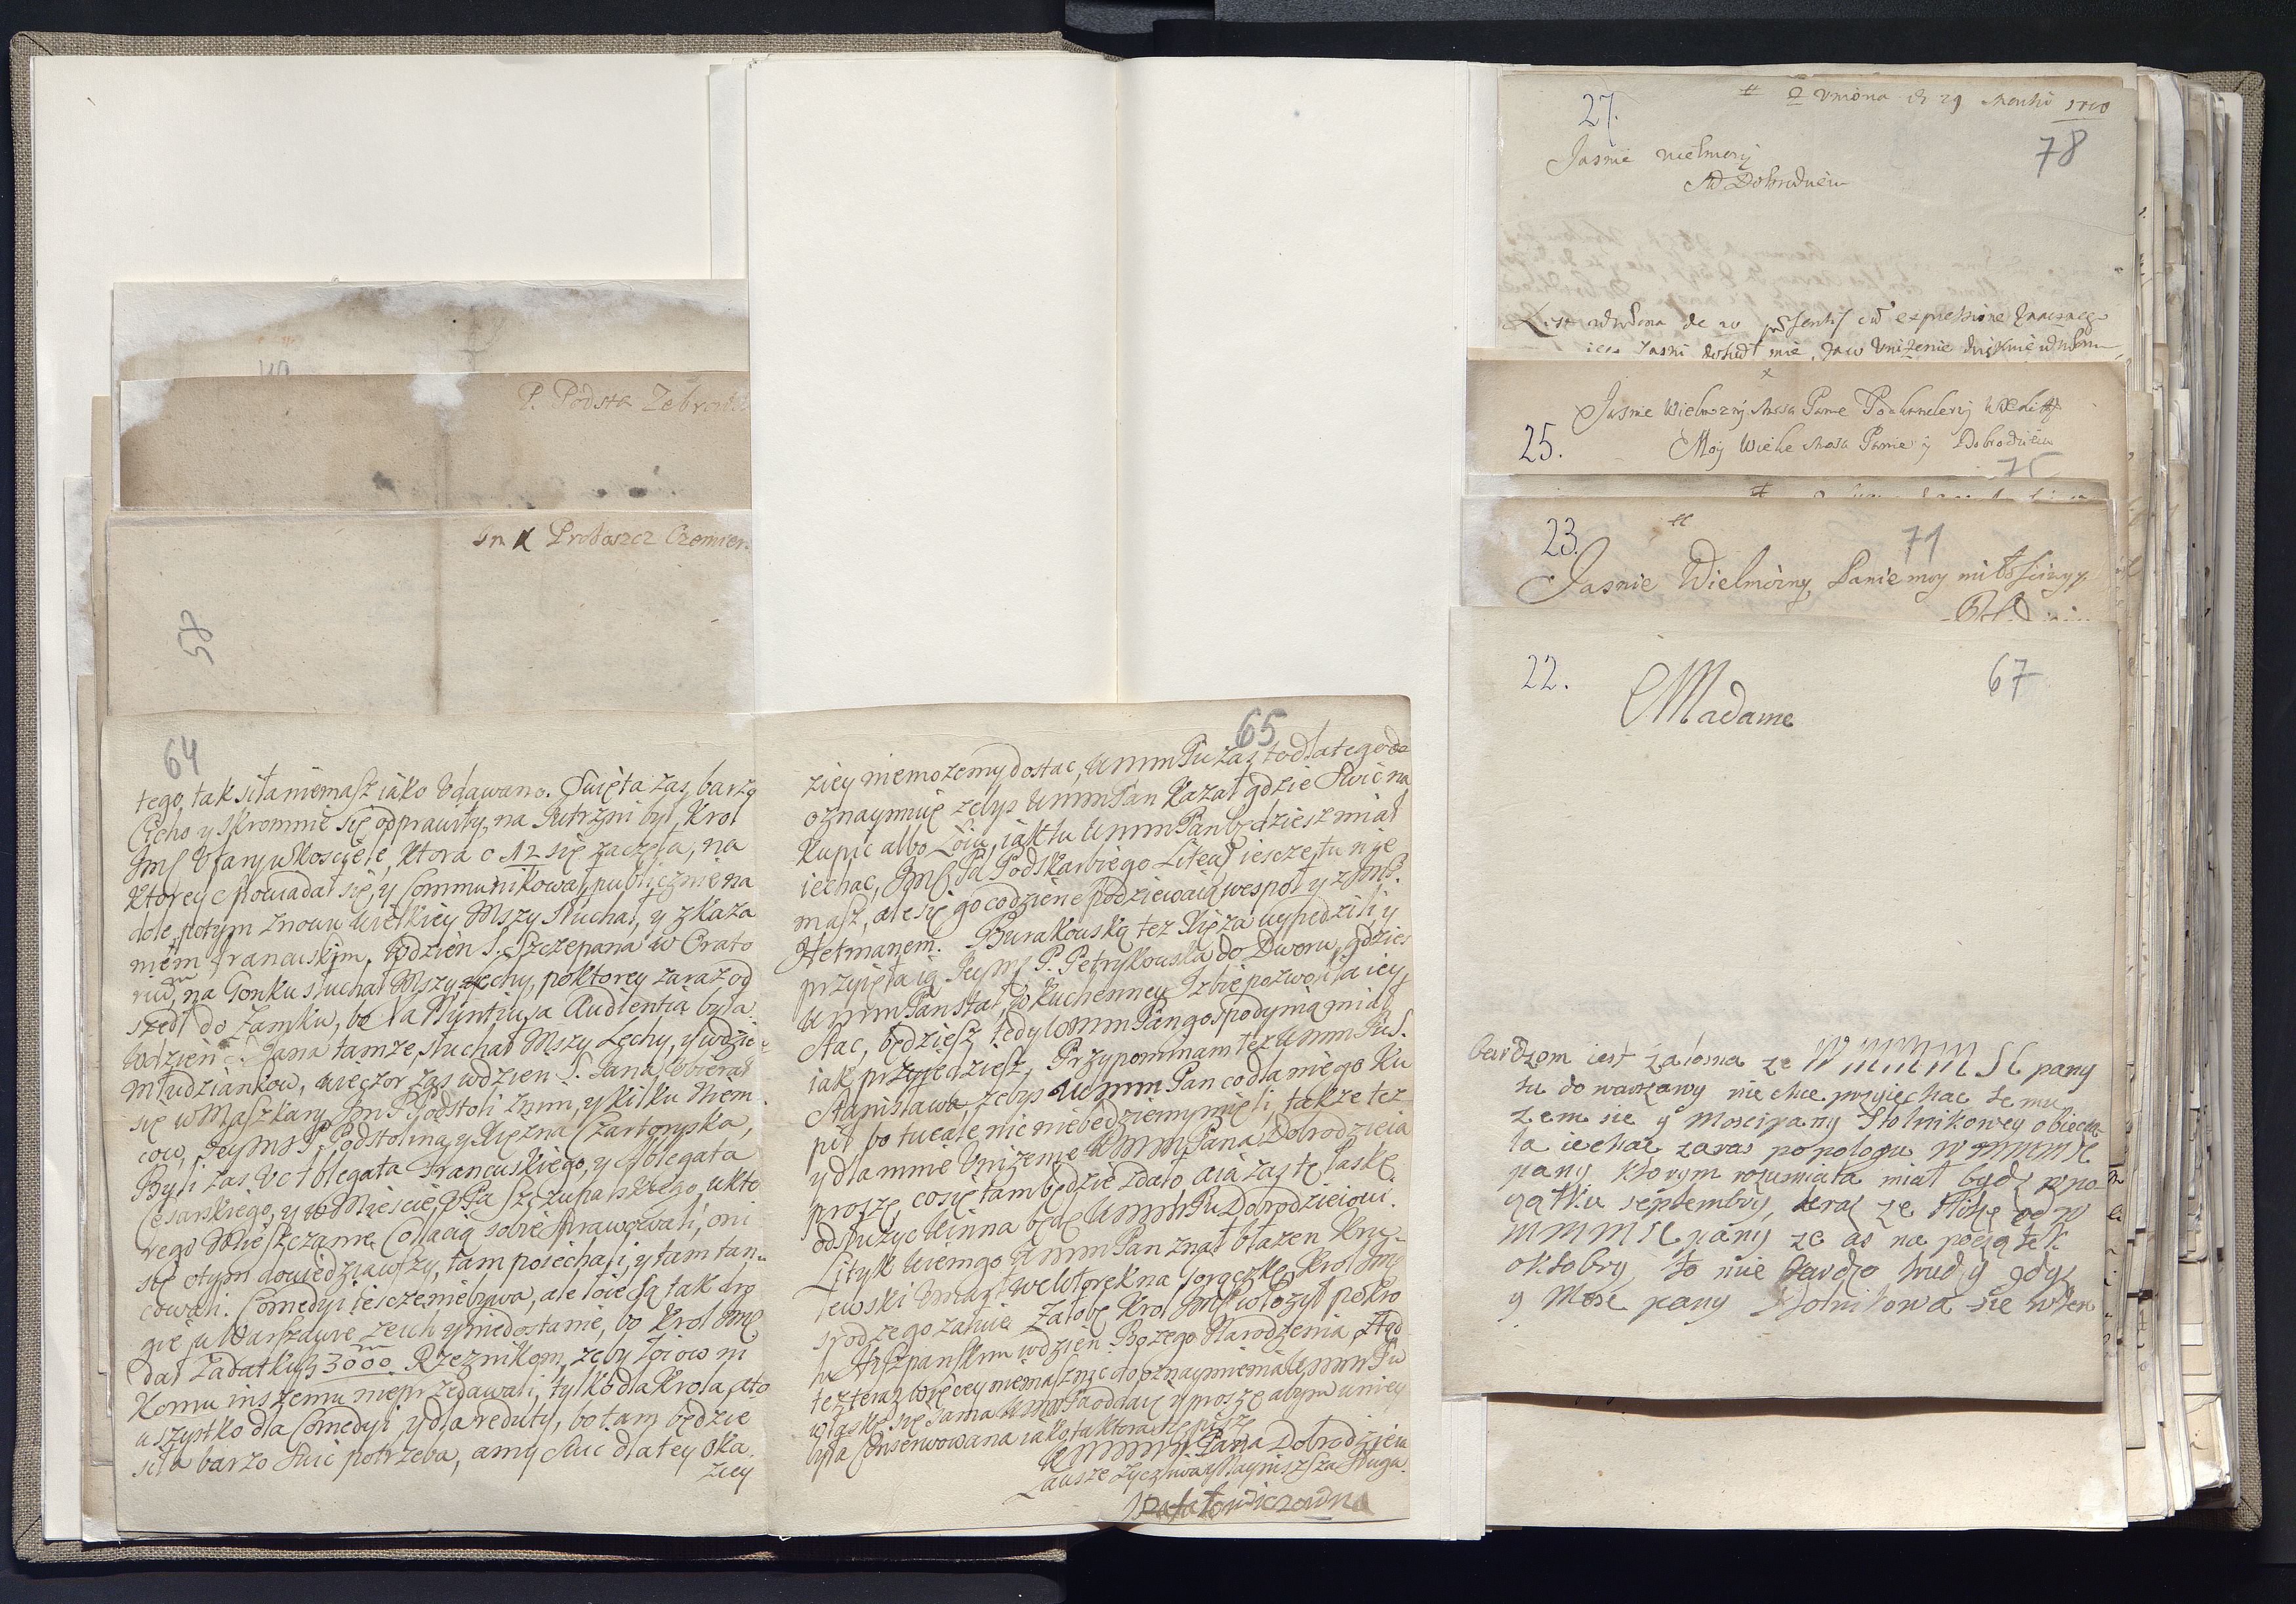 P. Podsta Zebra
Im X Proboszcz Czemier
58
64
tego, tak siła niemasz iako Udawano. Swięta zas barzo
Cicho y skromnie się odprawiły, na Jutrzni był Krol
Jmś U Fary w Kosciele, ktora o 12 się zaczęła, na
Ktorey spowiadał się, y Communikował, publicznie na
dole, potym znowu wielkiey Mszy słuchał, y z Kaza
niem francuskim. Wdzien S. Szczepana w Orato
rium, na Gonku słuchał Mszy Lechy, po ktorey zaraz od
szedł do Zamku, bo ta Nuntiusa Audientia była.
Wdzien S. Jana tamze słuchał Mszy Lechy, y wdzie
Młudziankow, wieczor zas wdzien S. Jana, Ubierał
się w Maszkary Jm P. Podstoli Znim, y kilku Niem
cow, Jeyms P. Podstolina, y Xięzna Czartoryska,
Byli zas U Ablegata Francuskiego, y Ablegata
Cesarskiego, y w Miescie, U Pa Szczupalskiego, u kto
rego Mieszczanie Colacią sobie sprawowali, oni
się otym dowiedziawszy, tam poiechali, y tam tan
cowali. Comedyi iescze niebywa, ale Łoie są tak dro
gie w Warszawie ze ich y niedostanie, bo Krol Jmś
dał Zadatku 3000 Rzeznikom, zeby Łoiow ni
Komu inszemu nieprzedawali, tylko dla Krola, a to
wszystko dla Comedyi, y dla reduty, bo tam będzie
siła barzo Swic potrzeba, a my Swic dla tey Oka
ziey
65
ziey niemozemy dostac, WmmPu zas to dla tego do
oznaymuię zebys WmmPan Kazał gdzie Swic na
Kupic albo Łoiu, iak tu WmmPan będziesz miał
iechac, Jmś Pa Podskarbiego Litew iescze tu nie
masz, ale się go codziene spodziewaią wespoł y z Jmś.
Hetmanem. Burakouską tez Xięza wypędzili, y
przyięła ią Jeyms P. Petrykouska do Dworu, gdzies
WmmPan stał, w Kuchenney Izbie pozwoliła iey
Stac, będziesz tedy WmmPan gospodynią miał
iak przyjedziesz, Przypominam tez WmmPu S.
Stanisława, zebys WmmPan co dla niego Ku
pił bo tu cale nic niebędziemy mieli, takze tez
y dla mnie Unizenie WmmPana Dobrodzieia
proszę, co się tam będzie zdało, a ia zas tę łaskę
odsłuzyc winna będę WmmPu Dobrodzieiowi.
Lityk ktorego WmmPan znał błazen Kro
lewski Umarł we Wtorek na gorączkę, Krol Jmś
srodze go załuie. Załobę Krol Jmś włozył po Kro
lu Hiszpanskim wdzien Bozego Narodzenia, Ztąd
tez teraz więcey niemasz nic do oznaymienia WmmPu
w łaskę się sama WmmPa oddaię y proszę abym w niey
była Conserwowana iako ta ktora się piszę
WmmmPana Dobrodzieia
Zawsze zyczliwa y Naynizsza Sługa
Rafałowiczowna
27.
78
Jasnie wielmozny
Mci Dobrodzieiu
25.
Jasnie Wielmozny Mosci Panie Podkanclerzy WXLitt
Moy Wielce Mosci Panie y Dobrodzieiu
75
23.
71
Jasnie Wielmozny Panie moy miłosciwy y
22.
67
Madame
bardzom iest załosna ze WMMM SC pany
tu do warszawy nie chce przyiechac temu
zem sie y Moscipany Stolnikowey obieca
ła iechac zaras po pologu WMMMSC
pany ktorym rozumiała miał bydz w po
czątku septembry, teraz ze słiszę od W
MMMSC pany ze as na początek
oktobry to mie bardzo trudy gdyz
y Msc pany Stolnikowa sie w ten